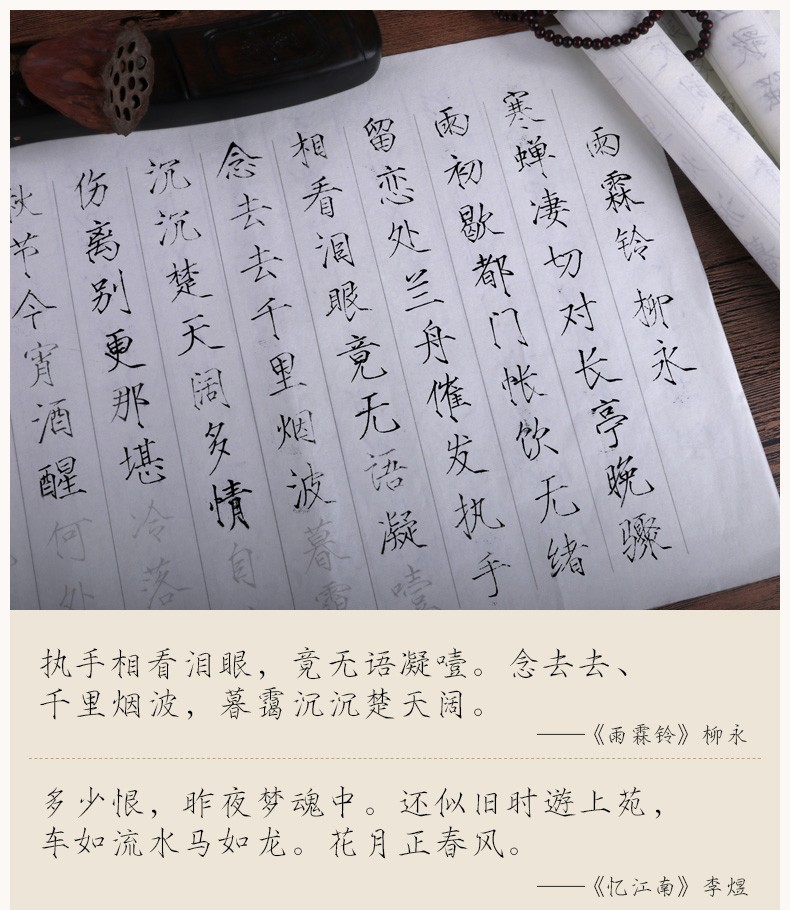 雨霖铃 柳永
寒蝉凄切对长亭晚骤
雨初歇都门帐饮无绪
留恋处兰舟催发执手
相看泪眼竟无语凝噎
念去去千里烟波暮霭
沉沉楚天阔多情自
伤离别更那堪冷落
秋节今宵酒醒何处
执手相看泪眼，竟无语凝噎。念去去、
千里烟波，暮霭沉沉楚天阔。
——《雨霖铃》柳永
多少恨，昨夜梦魂中。还似旧时遊上苑，
车如流水马如龙。花月正春风。
——《忆江南》李煜